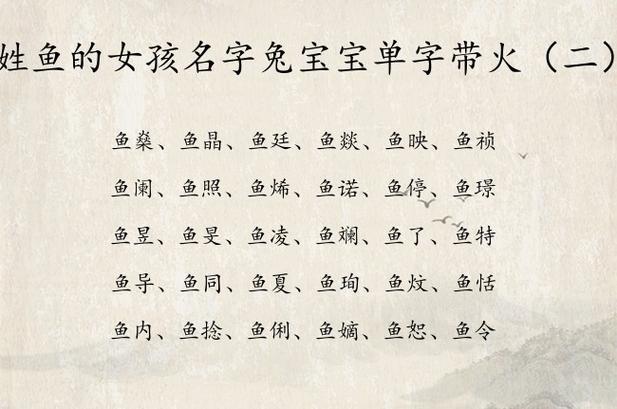 姓鱼的女孩名字兔宝宝单字带火（二）
鱼燊、鱼晶、鱼廷、鱼燚、鱼映、鱼祯
鱼阑、鱼照、鱼烯、鱼诺、鱼停、鱼璟
鱼昱、鱼旻、鱼凌、鱼斓、鱼了、鱼特
鱼导、鱼同、鱼夏、鱼珣、鱼炆、鱼恬
鱼内、鱼捻、鱼俐、鱼嫡、鱼恕、鱼令